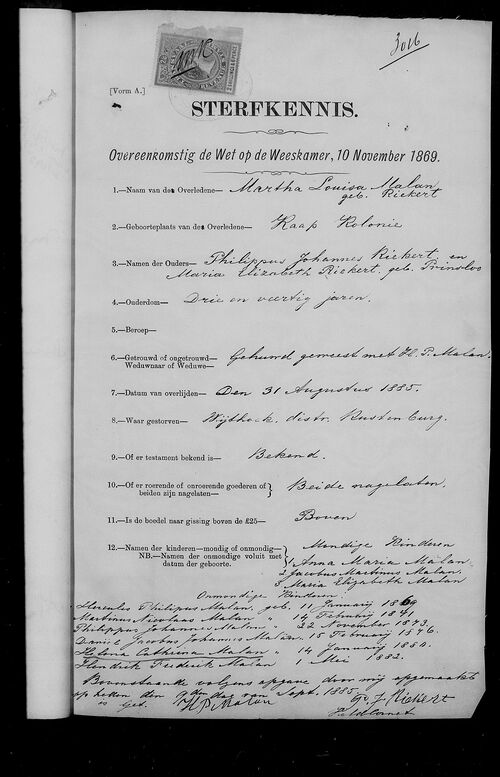 3016
[Vorm A.]
STERFKENNIS.
Overeenkomstig de Wet op de Weeskamer, 10 November 1869.
1.—Naam van den Overledene— Martha Louisa Malan
geb. Riekert
2.—Geboorteplaats van den Overledene— Kaap Kolonie
3.—Namen der Ouders— Philippus Johannes Riekert en
Maria Elizabeth Riekert, geb. Prinsloo
4.—Ouderdom— Drie en veertig jaren.
5.—Beroep—
6.—Getrouwd of ongetrouwd— Gehuwd geweest met H. P. Malan.
Weduwnaar of Weduwe—
7.—Datum van overlijden— Den 31 Augustus 1885.
8.—Waar gestorven— distr. Rustenburg.
9.—Of er testament bekend is— Bekend.
10.—Of er roerende of onroerende goederen of
beiden zijn nagelaten— Beide nagelaten.
11.—Is de boedel naar gissing boven de £25— Boven
12.—Namen der kinderen—mondig of onmondig— Mondige Kinderen
NB.—Namen der onmondige voluit met
datum der geboorte.
1 Anna Maria Malan
2 Jacobus Martinus Malan.
3 Maria Elizabeth Malan
Onmondige Kinderen:
Hercules Philipus Malan, geb. 11 Januarij
Martinus Nicolaas Malan " 14 Februarij
Philippus Johannes Malan " 22 November 1873.
Daniel Jacobus Johannes Malan, 15 Februarij 1876.
Helena Cathrina Malan " 14 Januarij 1880.
Hendrik Fredrik Malan " 1 Mei 1882.
Bovenstaande volgens opgave door mij opgemaakt
op heden den 9den dag van Sept. 1885.
is get. H P Malan
P. J. Riekert
Veldcornet